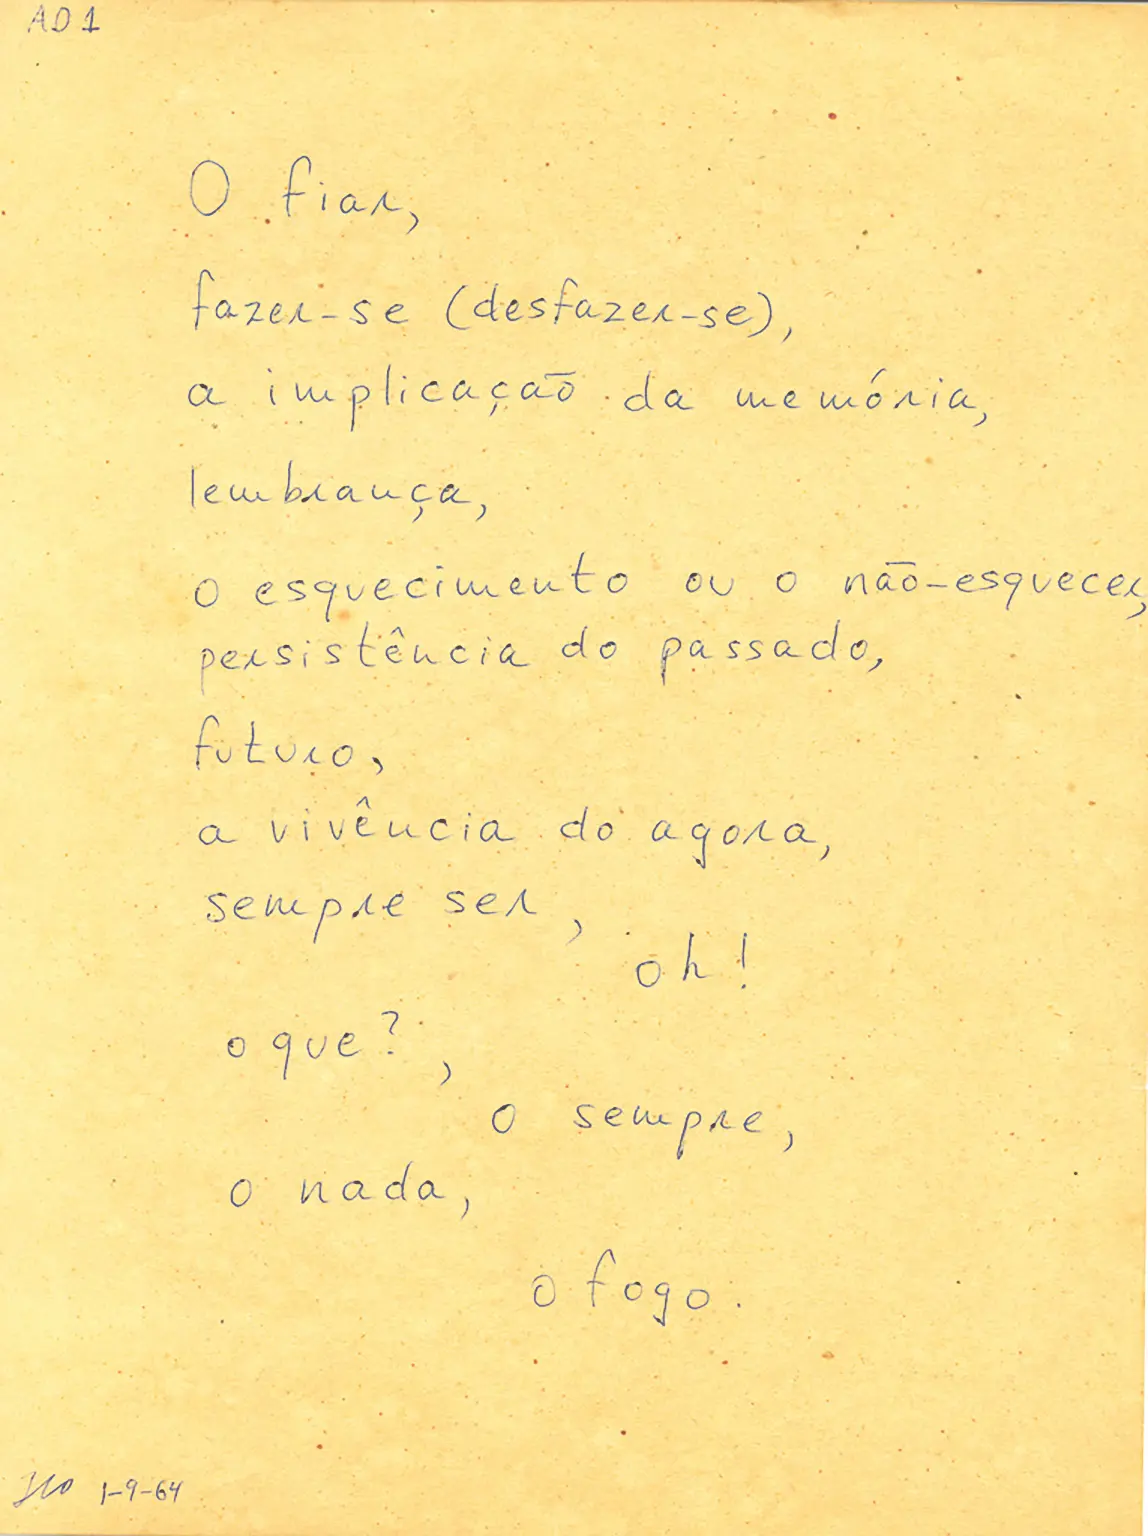 AD 1
O fiar,
fazer-se (desfazer-se),
a implicação da memória,
lembrança,
o esquecimento ou o não-esquecer,
persistência do passado,
futuro,
a vivência do agora,
sempre ser,
oh!
o que?,
o sempre,
o nada,
o fogo.
HO 1-9-64